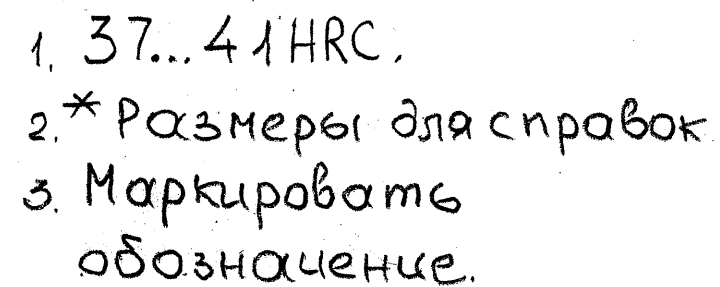 1. 37...41HRC.
2.* Размеры для справок
3. Маркировать
обозначение.